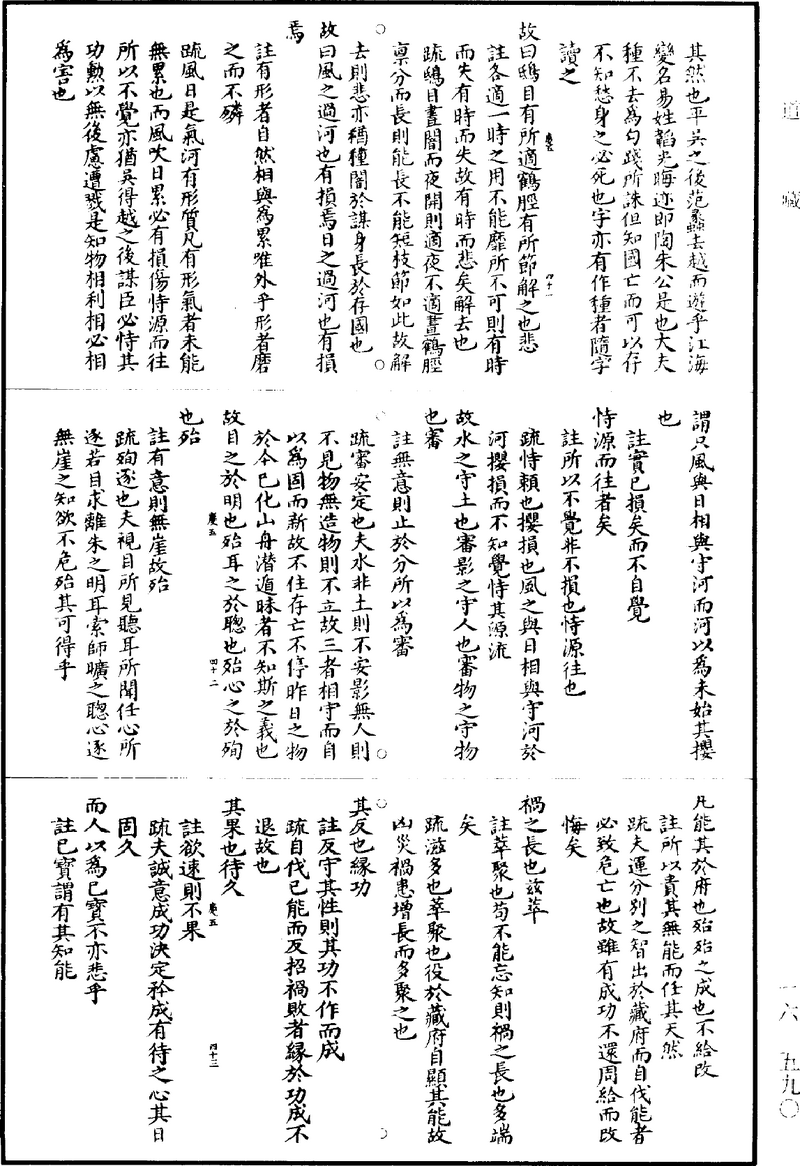 道藏
一六 五九〇
其然也平吳之後范蠡去越而遊乎江海
變名易姓韜光晦迹即陶朱公是也大夫
種不去爲勾踐所誅但知國亡而可以存
不知愁身之必死也字亦有作種者隨字
讀之
故曰鴟目有所適鶴脛有所節解之也悲
註各適一時之用不能靡所不可則有時
而失有時而失故有時而悲矣解去也
疏鴟目晝闇而夜開則適夜不適晝鶴脛
禀分而長則能長不能短枝節如此故解
去則悲亦猶種闇於謀身長於存國也
故曰風之過河也有損焉日之過河也有損
焉
註有形者自然相與爲累唯外乎形者磨
之而不磷
疏風日是氣河有形質凡有形氣者未能
無累也而風吹日累必有損傷恃源而往
所以不覺亦猶吳得越之後謀臣必恃其
功勳以無後慮遭戮是知物相利相必相
爲害也
慶五
四十一
謂只風與日相與守河而河以爲未始其攖
也
註實已損矣而不自覺
恃源而往者矣
註所以不覺非不損也恃源往也
疏恃賴也攖損也風之與日相與守河於
河攖損而不知覺恃其源流
故水之守土也審影之守人也審物之守物
也審
註無意則止於分所以爲審
疏審安定也夫水非土則不安影無人則
不見物無造物則不立故三者相守而自
以爲固而新故不住存亡不停昨日之物
於今已化山舟潛遁昧者不知斯之義也
故目之於明也殆耳之於聰也殆心之於殉
也殆
註有意則無崖故殆
疏殉逐也夫視目所見聽耳所聞任心所
逐若目求離朱之明耳索師曠之聰心逐
無崖之知欲不危殆其可得乎
慶五
四十二
凡能其於府也殆殆之成也不給改
註所以貴其無能而任其天然
疏夫運分別之智出於藏府而自伐能者
必致危亡也故雖有成功不還周給而改
悔矣
禍之長也兹萃
註萃聚也苟不能忘知則禍之長也多端
矣
疏滋多也萃聚也役於藏府自顯其能故
凶災禍患增長而多聚之也
其反也緣功
註反守其性則其功不作而成
疏自伐己能而反招禍敗者緣於功成不
退故也
其果也待久
註欲速則不果
疏夫誠意成功決定矜成有待之心其日
固久
而人以爲已寳不亦悲乎
註已寳謂有其知能
慶五
四十三